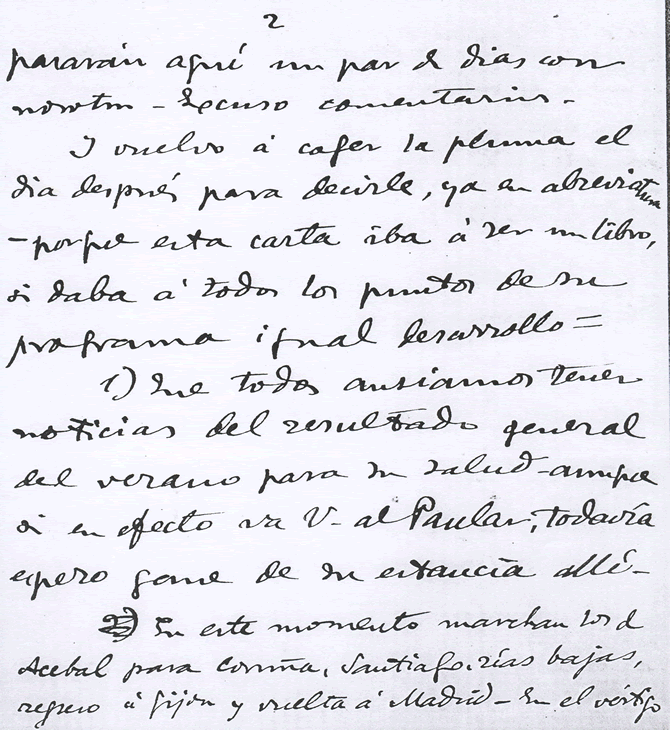 2
pararán aquí un par de dias con
nosotros - Excuso comentarios -
Y vuelvo á coger la pluma el
dia después para decirle, ya en abreviatura
- porque esta carta iba á ser un libro,
si daba á todos los puntos de su
programa igual desarrollo =
1) Que todos ansiamos tener
noticias del resultado general
del verano para su salud - aunque
si en efecto va V. al Paular, todavía
espero gane de su estancia allí -
2) En este momento marchan los de
Acebal para Coruña, Santiago, rías bajas,
regreso á Gijón y vuelta á Madrid - En el vértigo